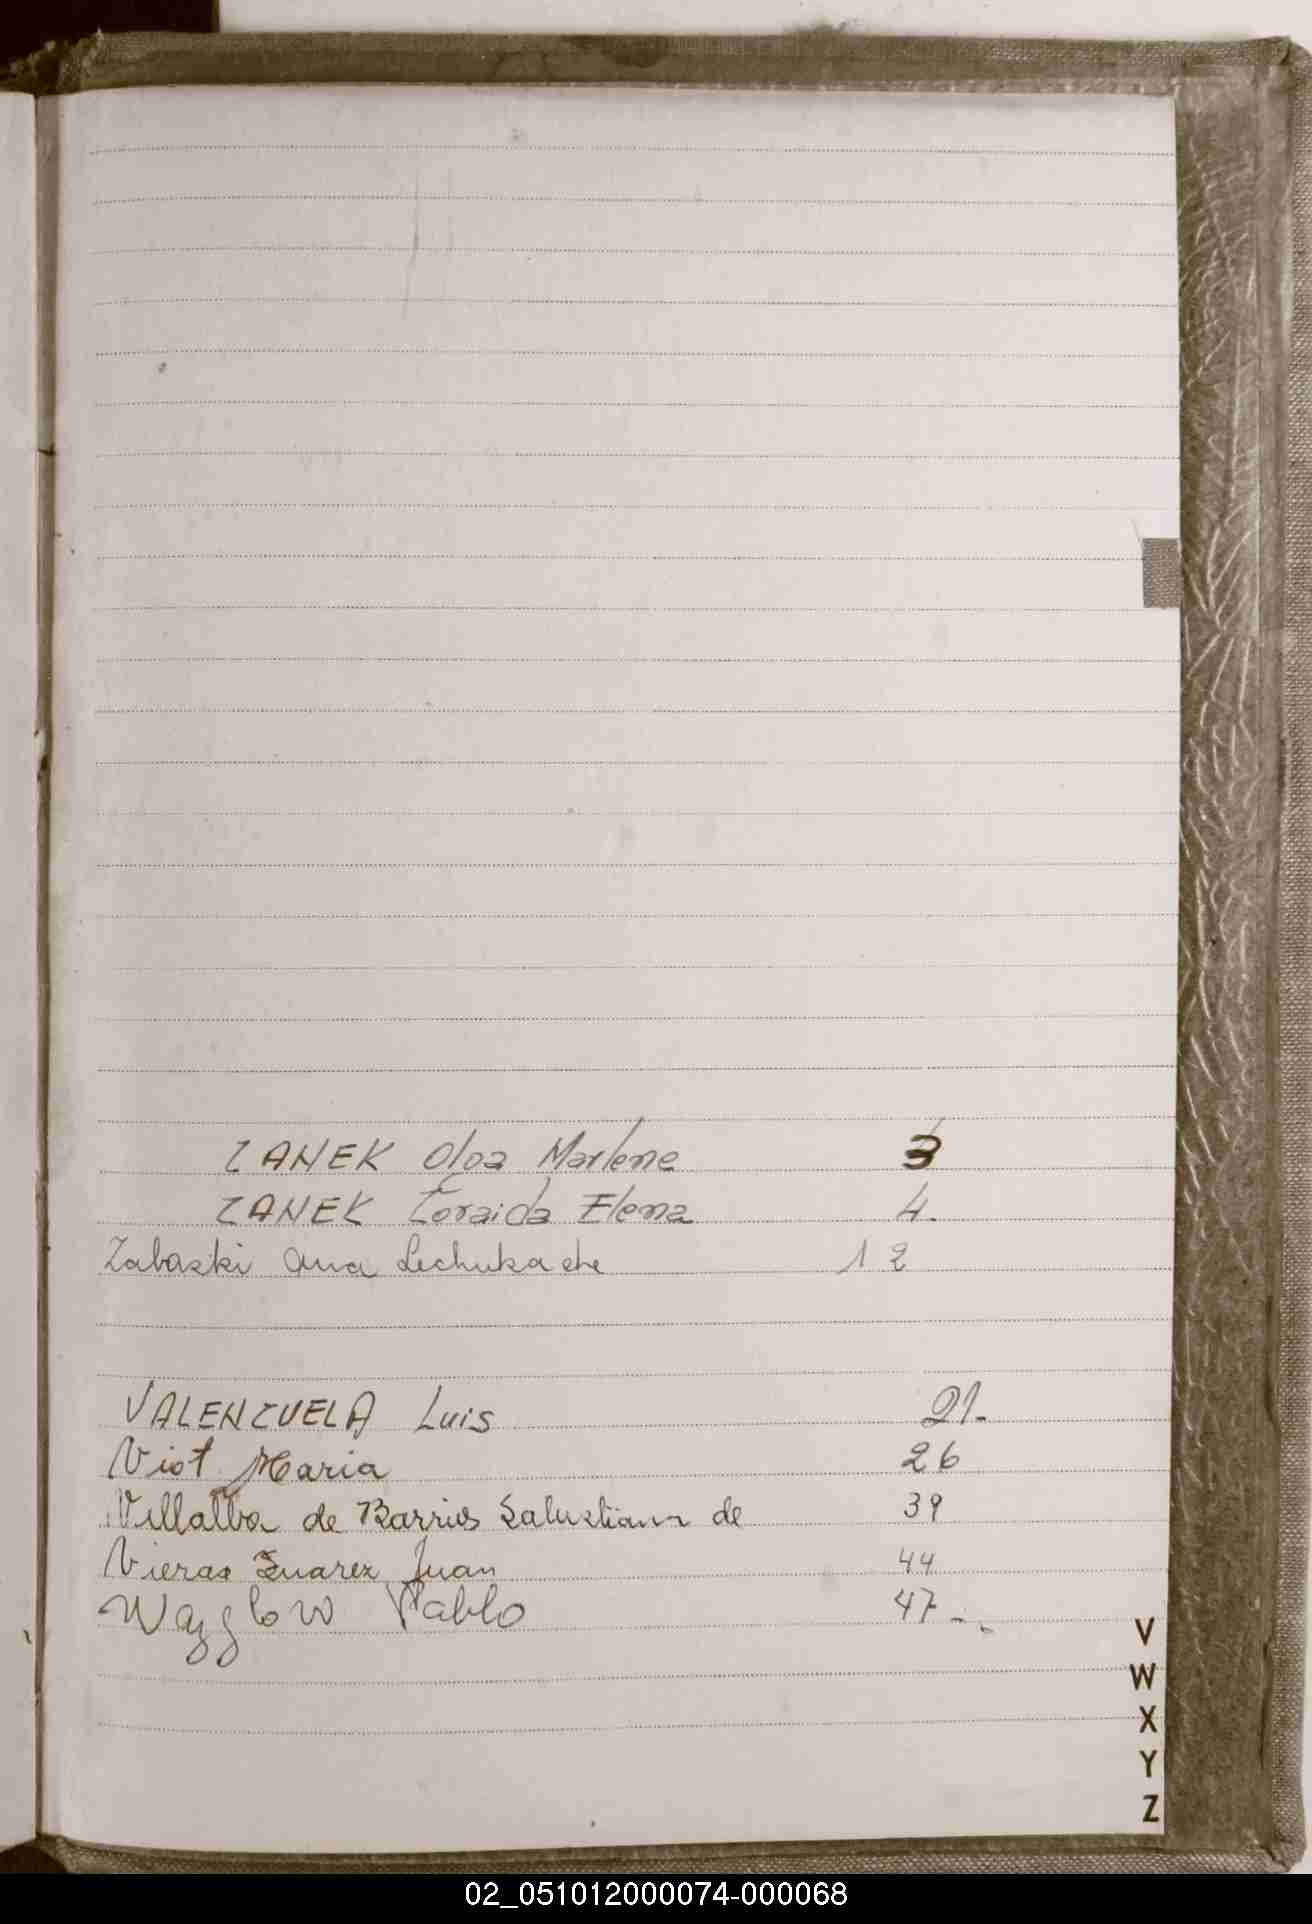 ZANEK Olga Marlene 3
ZANEK Zoraida Elena 4.
Zabaski Ana Lechuka de 12
VALENZUELA Luis 21.
Viot Maria 26
Villalba de Barrios Salustiana de 39
Vieras Suarez Juan 44
Wayglow Pablo 47-
V
W
X
Y
Z
02_051012000074-000068